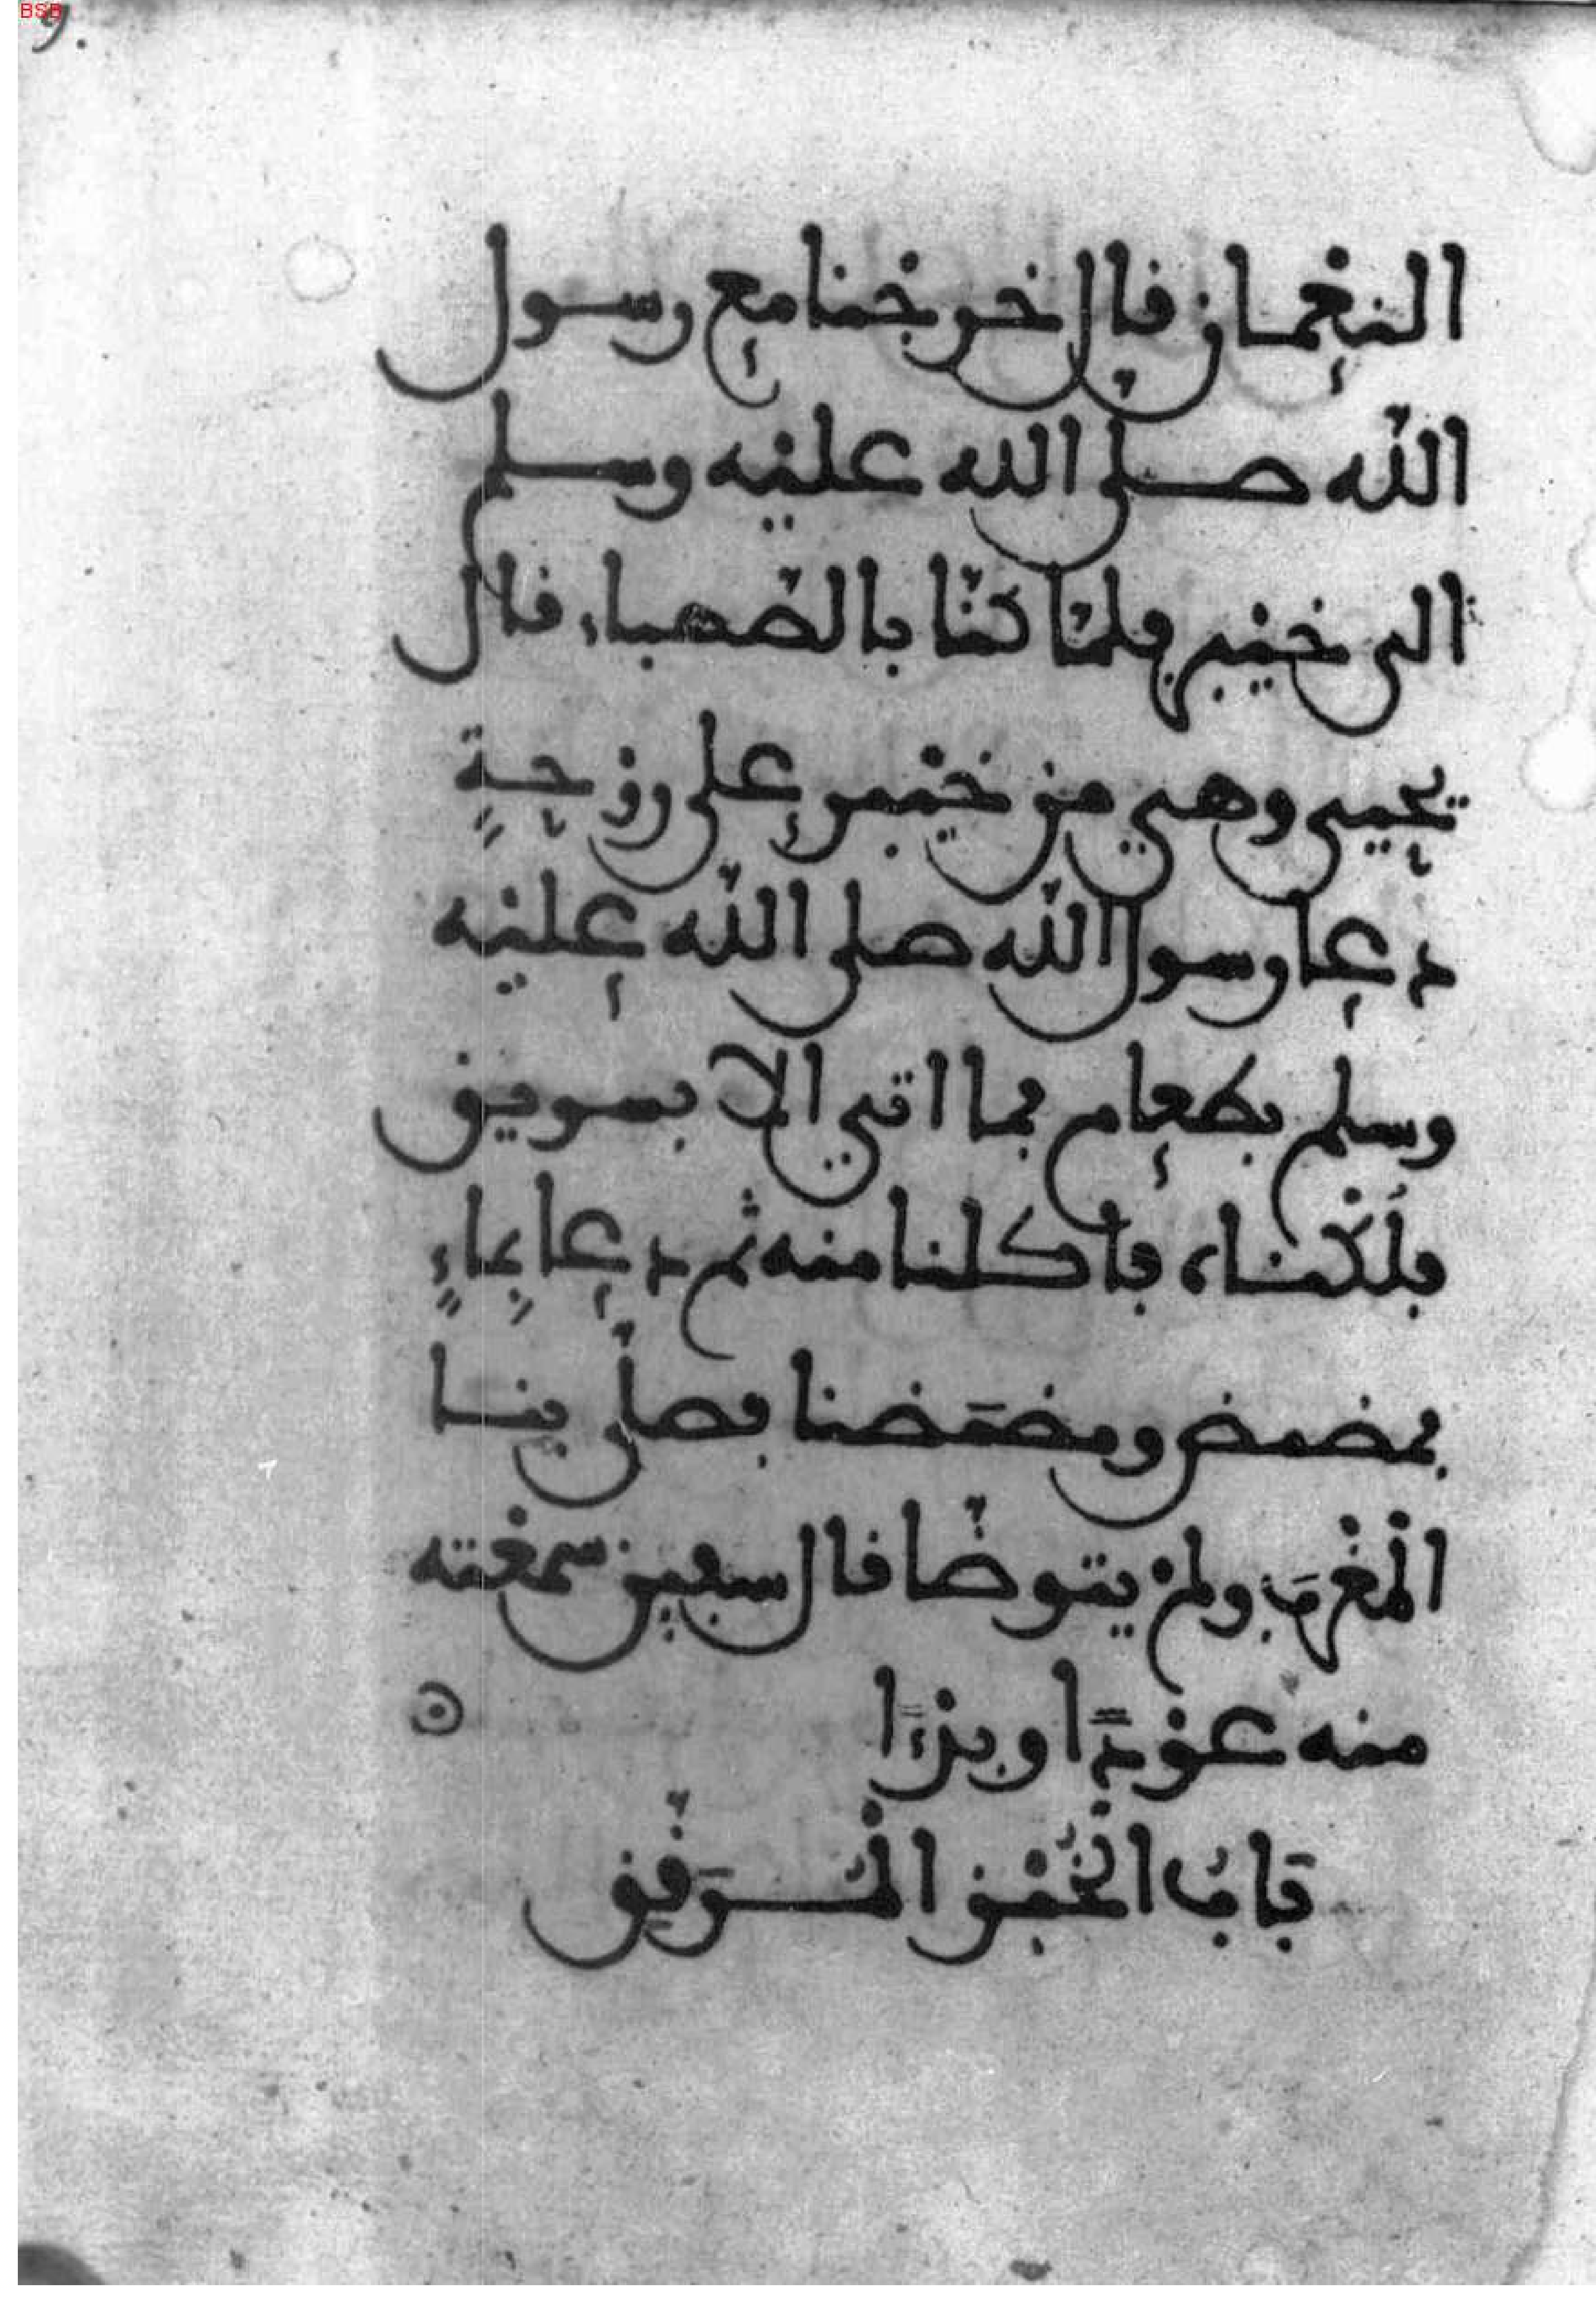 BSB
9.
النعمان قال خرجنا مع رسول
الله صلى الله عليه وسلم
الى خيبر فلمّا كنّا بالصّهباء قال
يحيى وهي من خيبر على روحةٍ
دعا رسول الله صلى الله عليه
وسلم بطعام فما اتي الا بسويق
فلُكْناه فاكلنا منه ثم دعا بماءٍ
فمضمض ومضمَضنا فصلّى بنا
المغرب ولم يتوضّا قال سفين سمعته
منه عودًا وبدءًا
بَابُ الخُبْز المُرَقّق